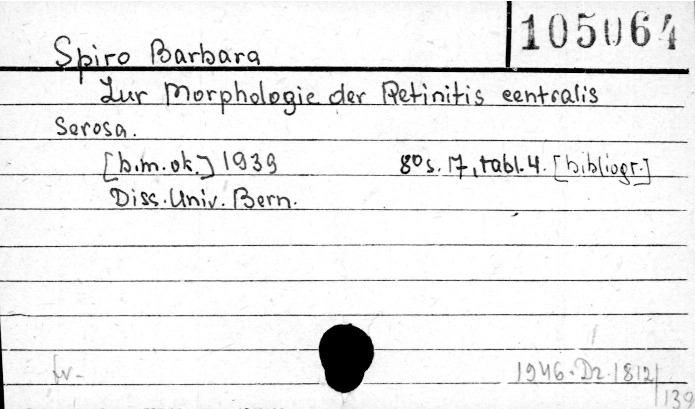 105064
Spiro Barbara
Zur Morphologie der Retinitis centralis
Serosa.
[b.m.ok.] 1939 8° s. 17, tabl. 4. [bibliogr.]
Diss. Univ. Bern.
1946. Dz. 1812/
139